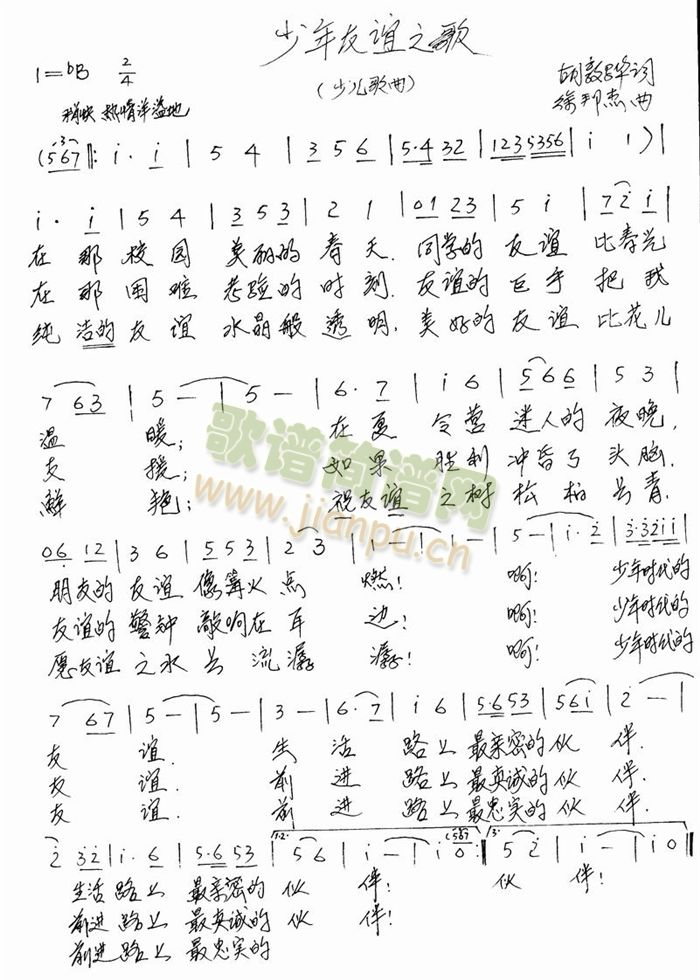 少年友谊之歌
1=bB 2/4 (少儿歌曲) 胡敦骅词
稍快 热情洋溢地 徐邦杰曲
(567‖: i· i | 5 4 | 3 5 6 | 5·4 32 | 123 5356 | i 1 ) |
i· i | 5 4 | 3 5 3 | 2 1 | 01 23 | 5 i | 7 2 i |
在那校园 美丽的春天.同学的友谊比春光
在那困难 考验的时刻.友谊的巨手把我
纯洁的友谊 水晶般透明.美好的友谊比花儿
7 63 | 5 - | 5 - | 6· 7 | i 6 | 5 6 6 | 5 3 |
温暖; 在夏令营迷人的夜晚,
支援; 如果胜利冲昏了头脑.
鲜艳; 祝友谊之树松柏长青.
歌谱简谱网
www.jianpu.cn
06 12 | 3 6 | 5 5 3 | 2 3 | i - | i - | 5 - | i· 2 | 3·32ii |
朋友的友谊像篝火点燃! 啊! 少年时代的
友谊的警钟敲响在耳边! 啊! 少年时代的
愿友谊之水长流潺潺! 啊! 少年时代的
7 67 | 5 - | 5 - | 3 - | 6· 7 | i 6 | 5·653 | 56i | 2 - |
友谊. 生活路上最亲密的伙伴.
友谊. 前进路上最真诚的伙伴.
友谊. 前进路上最忠实的伙伴.
2 32 | i· 6 | 5·6 53 | 1.2. 5 6 | i - | i 0 (567 :‖ 3. 5 2 | i - | i 0 ‖
生活路上最亲密的伙伴! 伙伴!
前进路上最真诚的伙伴!
前进路上最忠实的